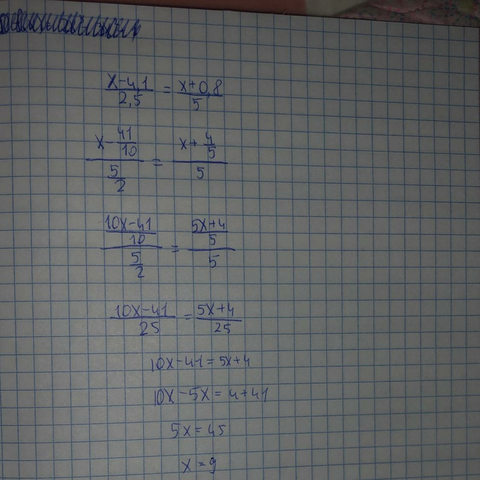 x-4,1/2,5 = x+0,8/5
x-41/10/5/2 = x+4/5/5
10x-41/10/5/2 = 5x+4/5/5
10x-41/25 = 5x+4/25
10x-41=5x+4
10x-5x=4+41
5x=45
x=9